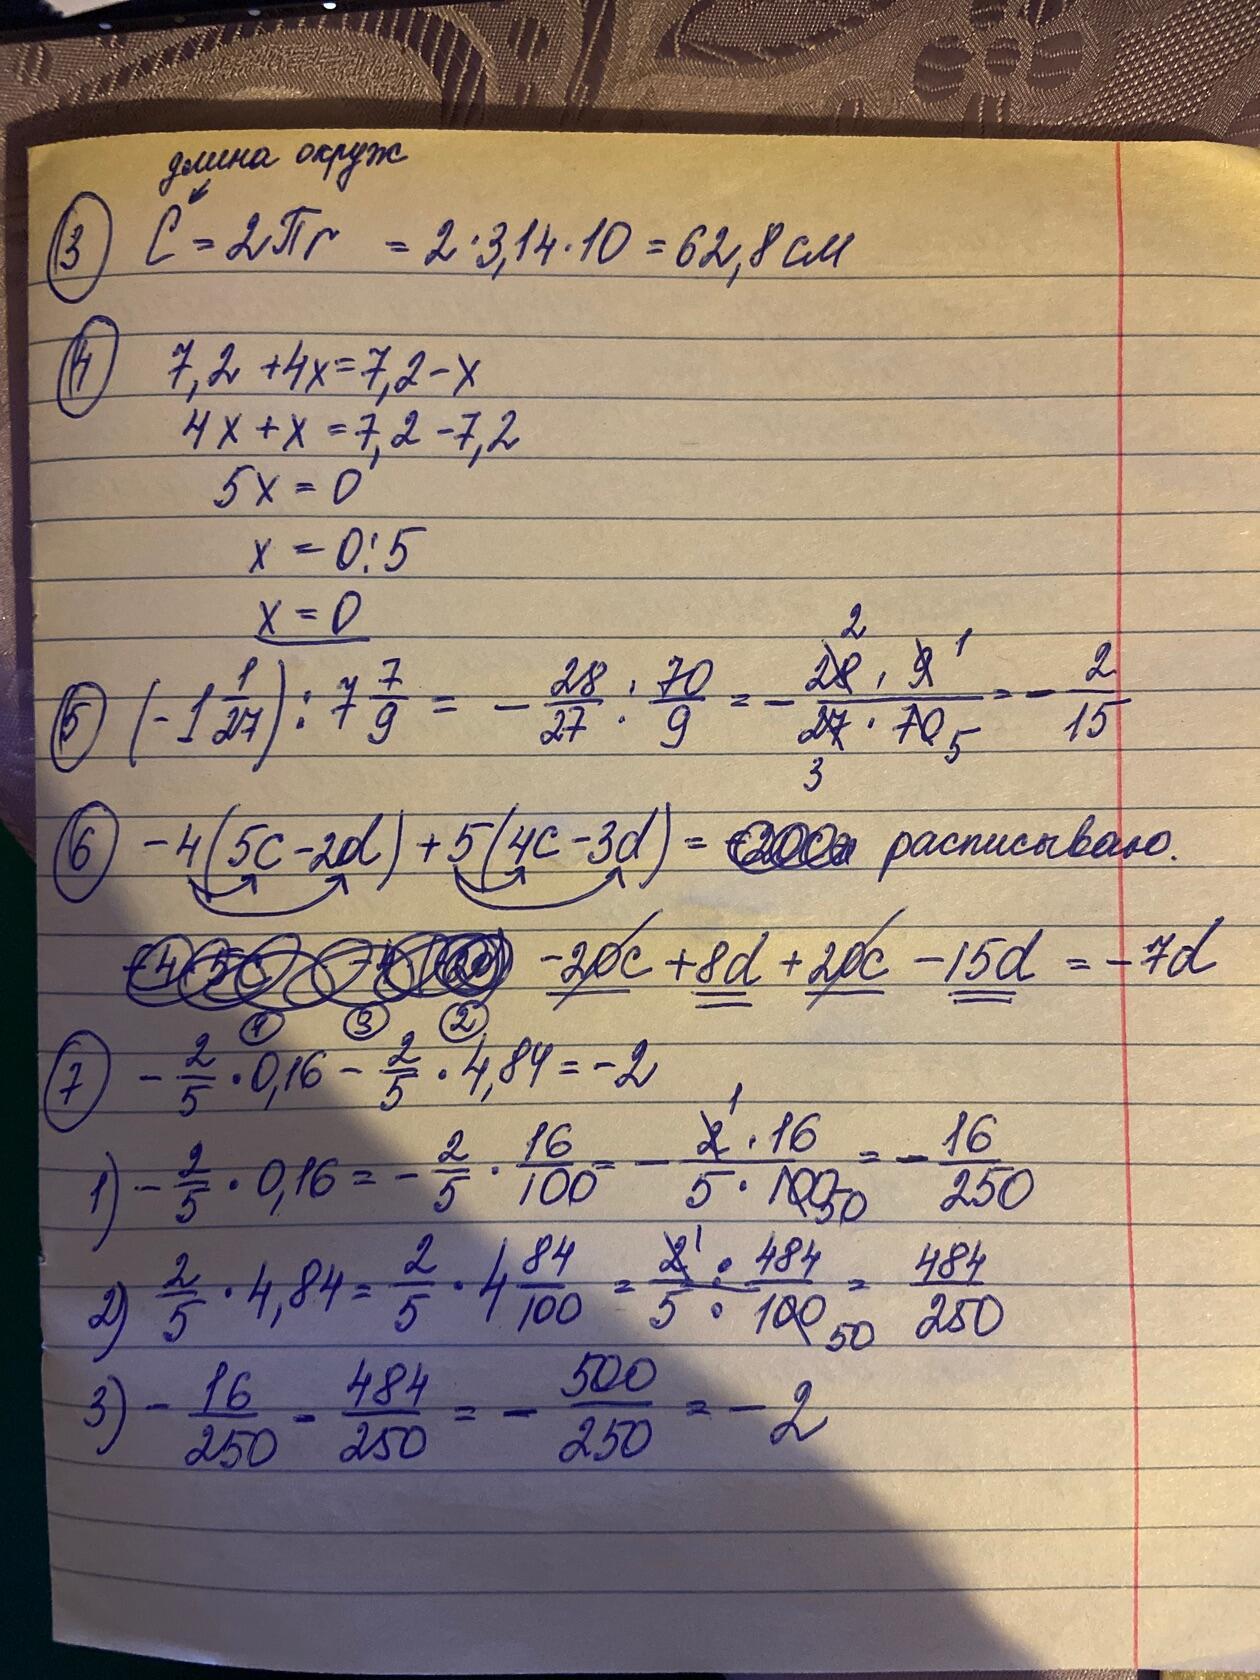 длина окруж
③ C = 2Пr = 2·3,14·10 = 62,8 см
④ 7,2 + 4x = 7,2 - x
4x + x = 7,2 - 7,2
5x = 0
x = 0:5
x = 0
⑤ (-1 1/27) : 7 7/9 = - 28/27 : 70/9 = - 28·9/27·70 = - 2/15
2 1 3 5
⑥ -4(5c-2d)+5(4c-3d) = расписываю.
-20c + 8d + 20c - 15d = -7d
① ③ ②
⑦ - 2/5 · 0,16 - 2/5 · 4,84 = -2
1) - 2/5 · 0,16 = - 2/5 · 16/100 = - 2·16/5·100 = - 16/250
1 50
2) 2/5 · 4,84 = 2/5 · 4 84/100 = 2·484/5·100 = 484/250
1 50
3) - 16/250 - 484/250 = - 500/250 = - 2